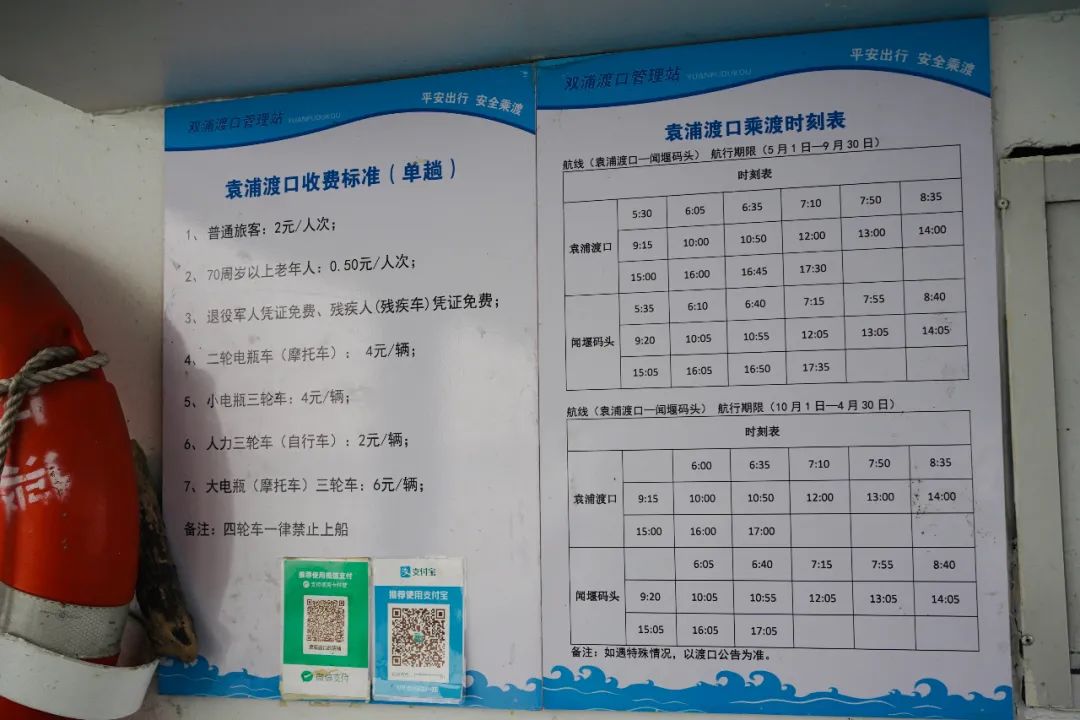 双浦渡口管理站 YUANPUDUKOU
平安出行 安全乘渡
袁浦渡口收费标准（单趟）
1、普通旅客：2元/人次；
2、70周岁以上老年人：0.50元/人次；
3、退役军人凭证免费、残疾人(残疾车)凭证免费；
4、二轮电瓶车（摩托车）： 4元/辆；
5、小电瓶三轮车：4元/辆；
6、人力三轮车（自行车）：2元/辆；
7、大电瓶（摩托车）三轮车：6元/辆；
备注：四轮车一律禁止上船
推荐使用微信支付
微信支付
支付宝
推荐使用支付宝
双浦渡口管理站 YUANPUDUKOU
平安出行 安全乘渡
袁浦渡口乘渡时刻表
航线（袁浦渡口—闻堰码头） 航行期限（5月1日—9月30日）
时刻表
袁浦渡口
5:30 6:05 6:35 7:10 7:50 8:35
9:15 10:00 10:50 12:00 13:00 14:00
15:00 16:00 16:45 17:30
闻堰码头
5:35 6:10 6:40 7:15 7:55 8:40
9:20 10:05 10:55 12:05 13:05 14:05
15:05 16:05 16:50 17:35
航线（袁浦渡口—闻堰码头） 航行期限（10月1日—4月30日）
时刻表
袁浦渡口
6:00 6:35 7:10 7:50 8:35
9:15 10:00 10:50 12:00 13:00 14:00
15:00 16:00 17:00
闻堰码头
6:05 6:40 7:15 7:55 8:40
9:20 10:05 10:55 12:05 13:05 14:05
15:05 16:05 17:05
备注：如遇特殊情况，以渡口公告为准。